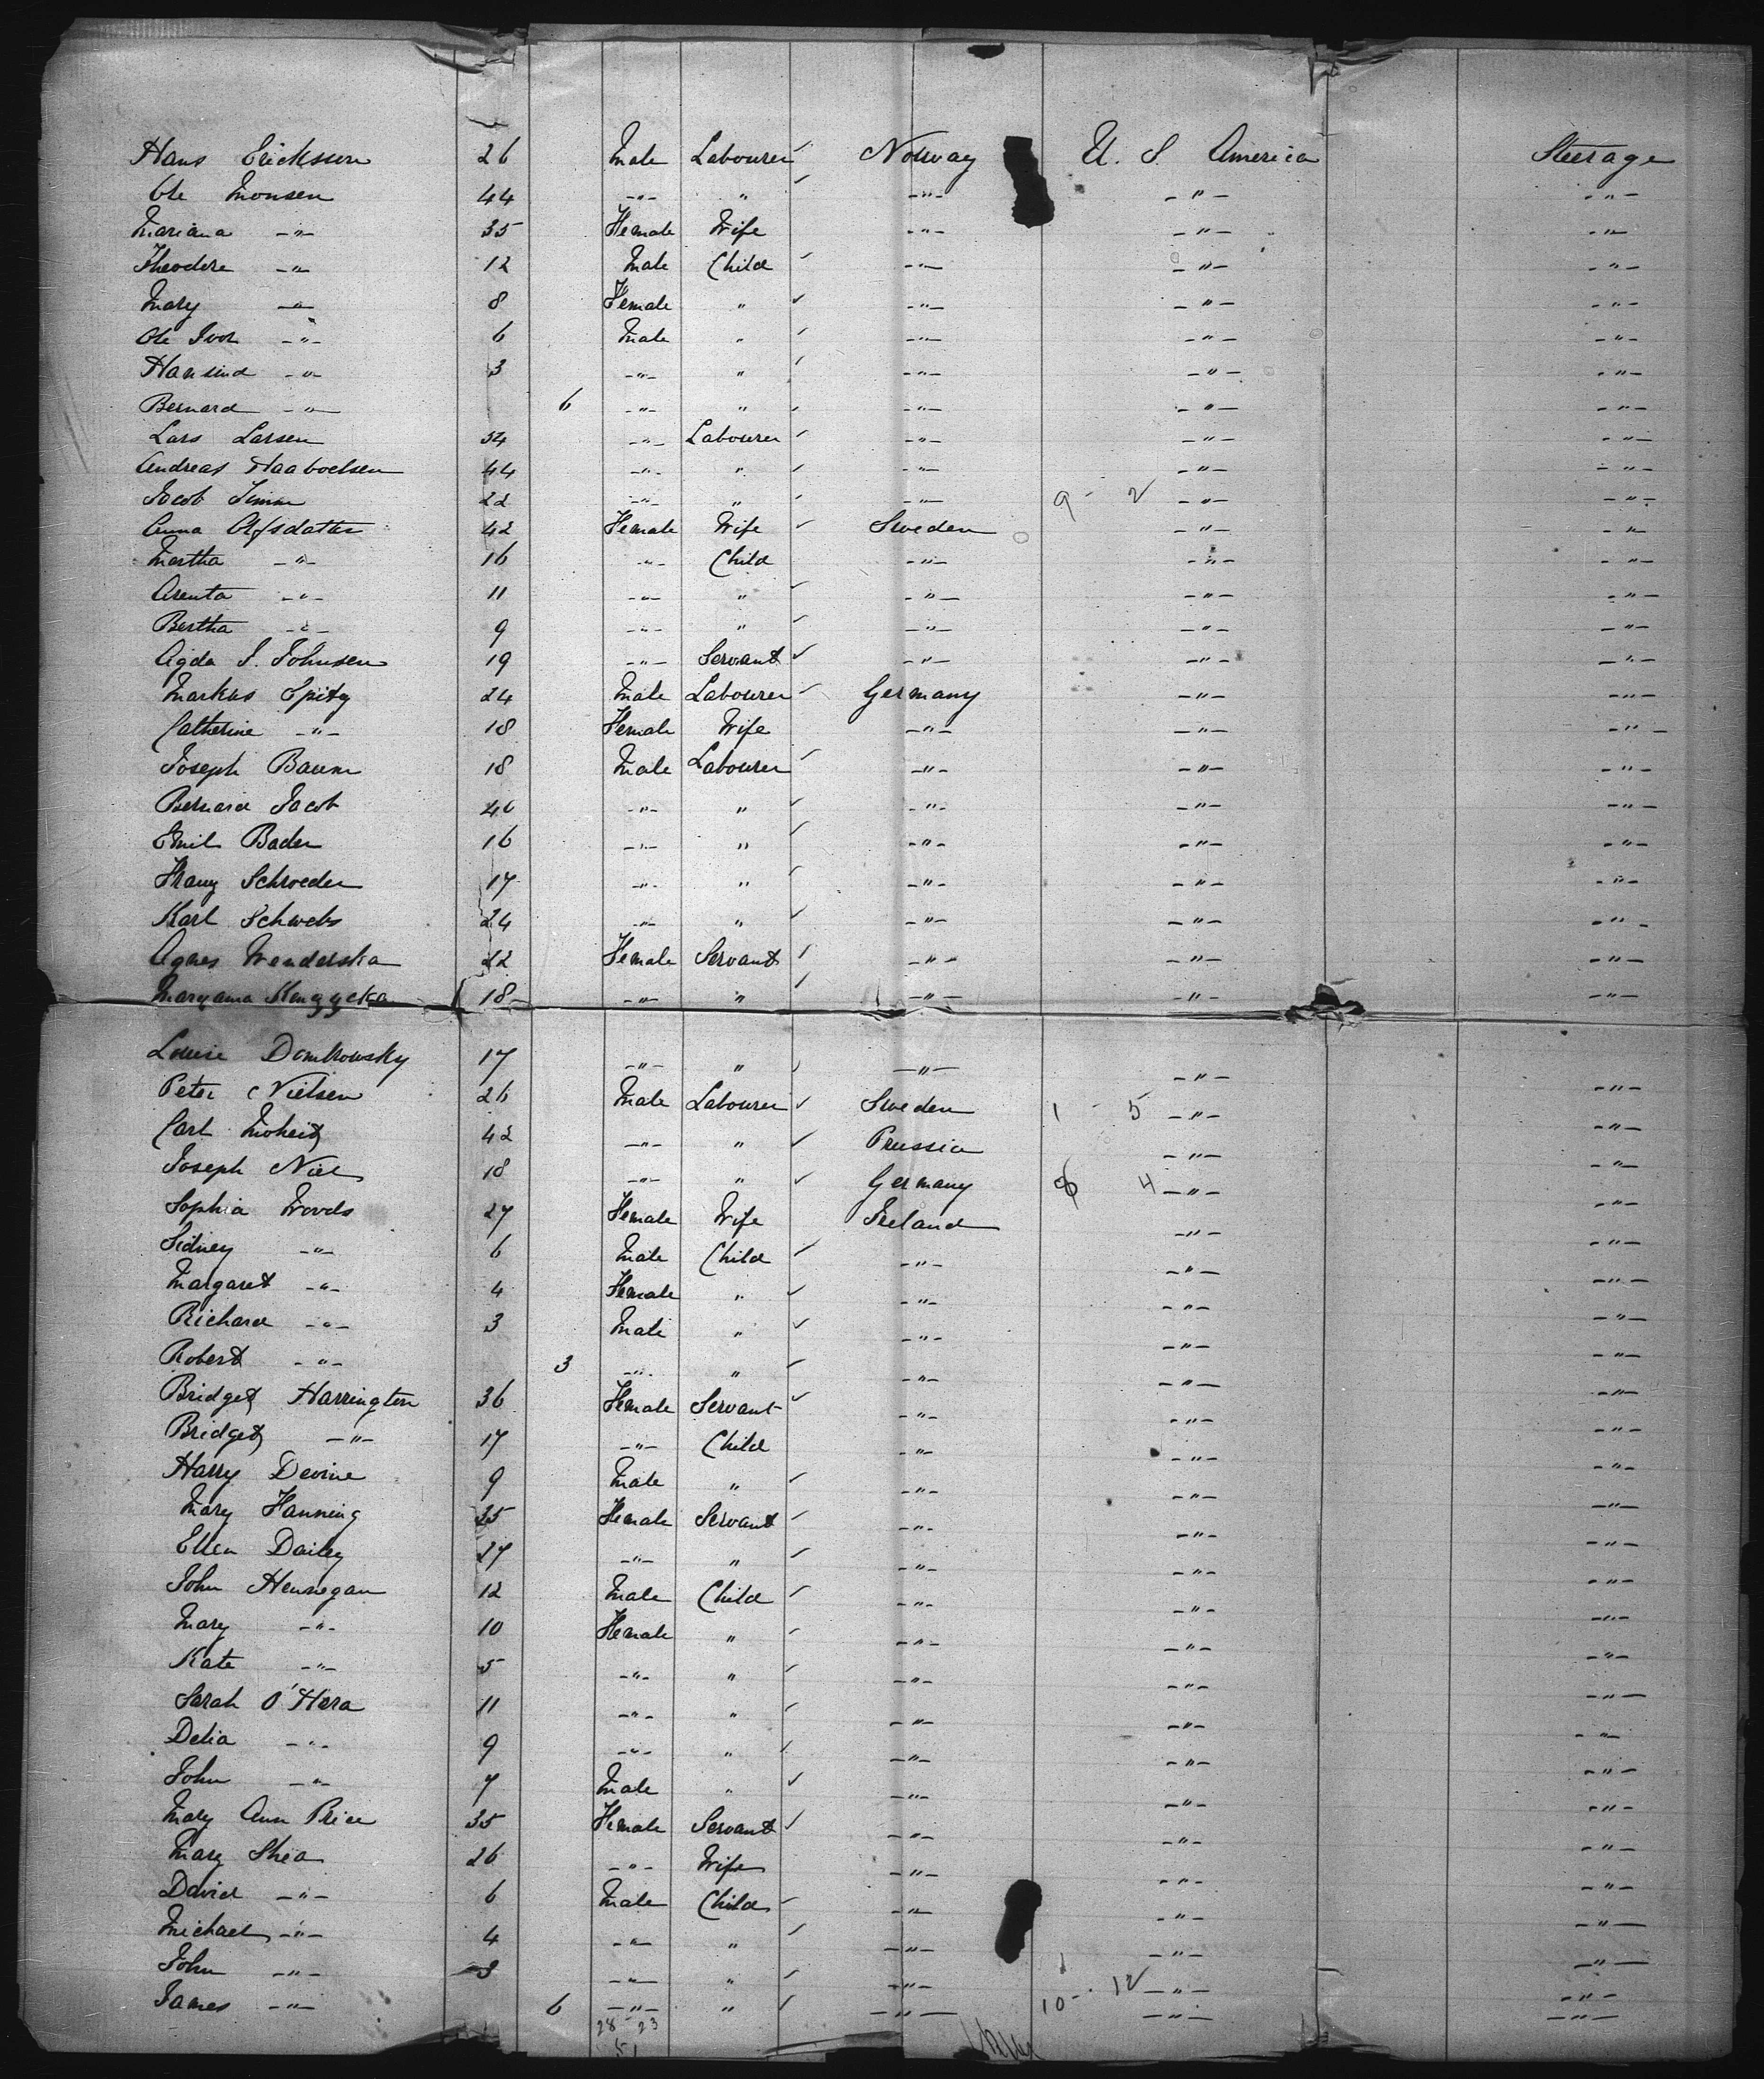 Hans Ericksson 26 Male Labourer Norway U. S. America Steerage
Ole Monsen 44 -"- " -"- -"- -"-
Mariana -"- 35 Female Wife -"- -"- -"-
Theodore -"- 12 Male Child -"- -"- -"-
Mary -"- 8 Female " -"- -"- -"-
Ole Ivor -"- 6 Male " -"- -"- -"-
-"- 3 -"- " -"- -"- -"-
Bernard -"- 6 -"- " -"- -"- -"-
Lars Larsen 34 -"- Labourer -"- -"- -"-
Andreas 44 -"- " -"- -"- -"-
Jacob 22 -"- " -"- 9 - 2 -"- -"-
Anna Olfsdatter 42 Female Wife Sweden -"- -"-
Martha -"- 16 -"- Child -"- -"- -"-
Arenta -"- 11 -"- " -"- -"- -"-
Bertha -"- 9 -"- " -"- -"- -"-
Agda S. Johnsen 19 -"- Servant -"- -"- -"-
Markus Spitz 24 Male Labourer Germany -"- -"-
Catherine -"- 18 Female Wife -"- -"- -"-
Joseph Baum 18 Male Labourer -"- -"- -"-
Bernard Jacob 40 -"- " -"- -"- -"-
Emil Bader 16 -"- " -"- -"- -"-
Franz Schroeder 17 -"- " -"- -"- -"-
Karl Schwebs 24 -"- " -"- -"- -"-
Agnes Wenderska 22 Female Servant -"- -"- -"-
Maryanna 18 -"- " -"- -"- -"-
Louise Dombrowsky 17 -"- " -"- -"- -"-
Peter Nielsen 26 Male Labourer Sweden 1 - 5 -"- -"-
Carl 42 -"- " Prussia -"- -"-
Joseph 18 -"- " Germany 8 4 -"- -"-
Sophia Woods 27 Female Wife Ireland -"- -"-
Sidney -"- 6 Male Child -"- -"- -"-
Margaret -"- 4 Female " -"- -"- -"-
Richard -"- 3 Male " -"- -"- -"-
Robert -"- 3 -"- " -"- -"- -"-
Bridget Harrington 36 Female Servant -"- -"- -"-
Bridget -"- 17 -"- Child -"- -"- -"-
Harry Devine 9 Male " -"- -"- -"-
Mary Hanning 25 Female Servant -"- -"- -"-
Ellen Dailey 27 -"- " -"- -"- -"-
John Hennegan 12 Male Child -"- -"- -"-
Mary -"- 10 Female " -"- -"- -"-
Kate -"- 5 -"- " -"- -"- -"-
Sarah O'Hara 11 -"- " -"- -"- -"-
Delia -"- 9 -"- " -"- -"- -"-
John -"- 7 Male " -"- -"- -"-
Mary Ann Price 35 Female Servant -"- -"- -"-
Mary Shea 26 -"- Wife -"- -"- -"-
David -"- 6 Male Child -"- -"- -"-
Michael -"- 4 -"- " -"- -"- -"-
John -"- 3 -"- " -"- -"- -"-
James -"- 6 -"- " -"- 10 - 12 -"- -"-
28 - 23
51